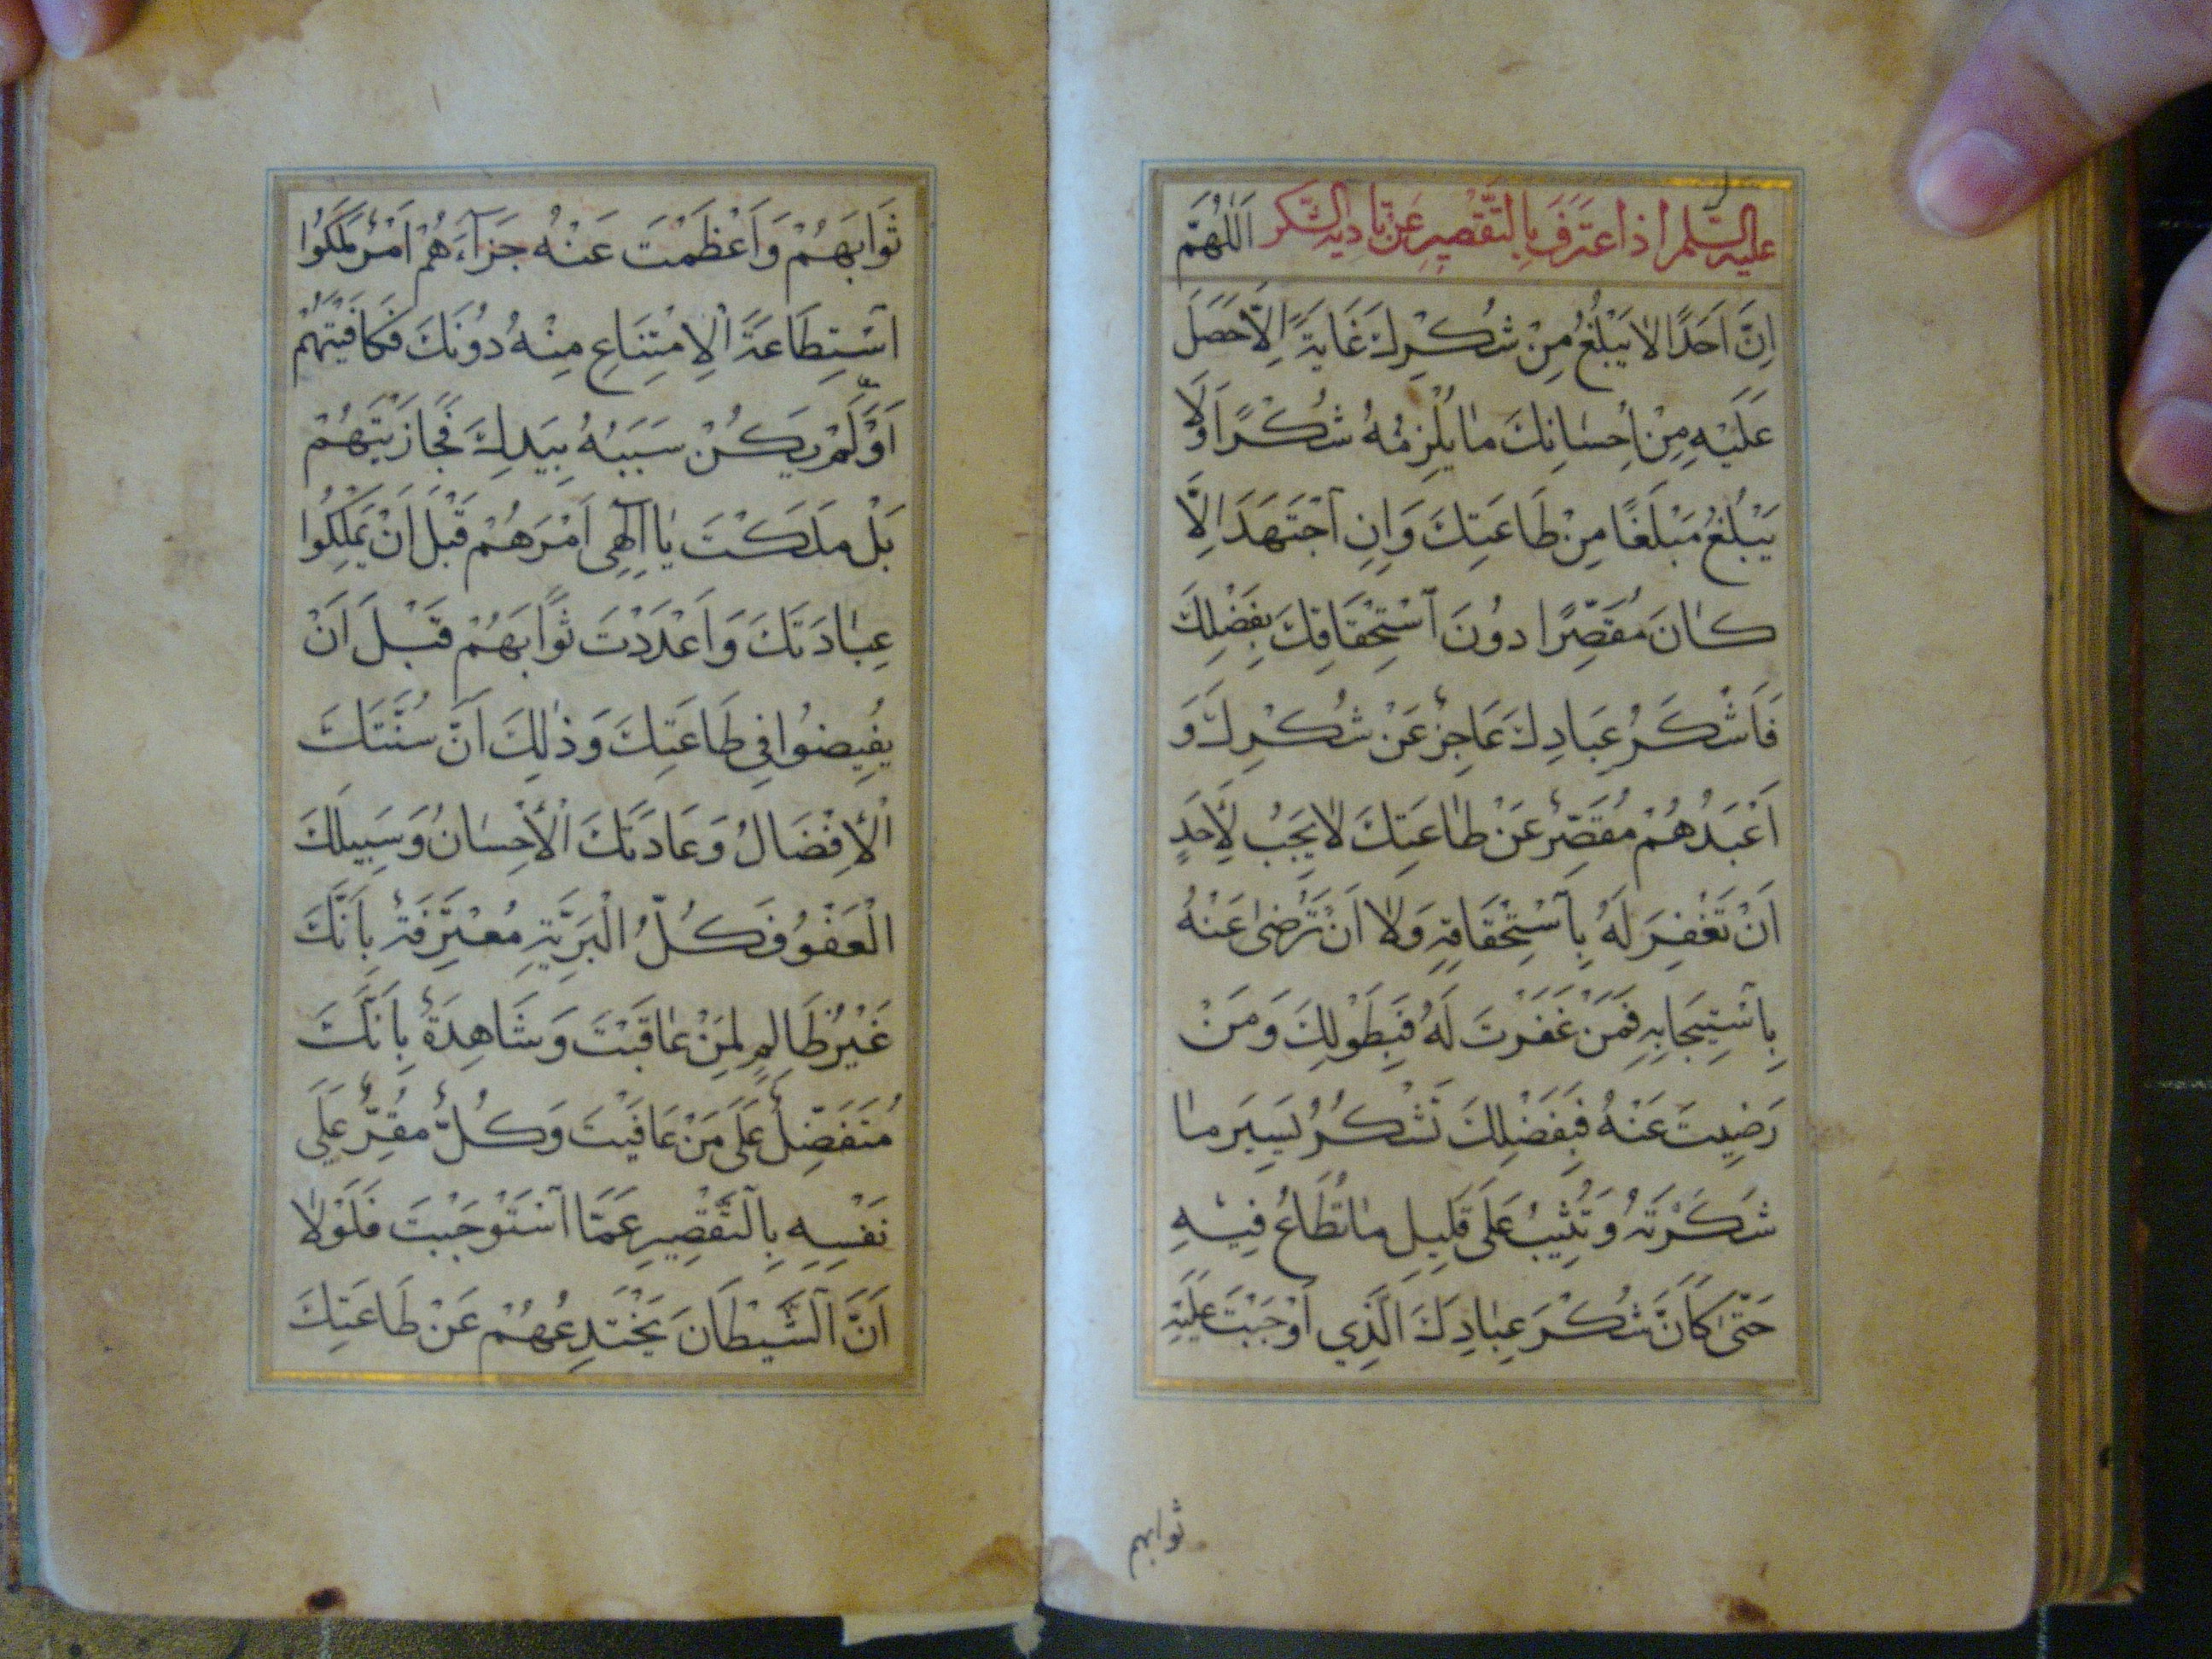 عليه السلم اذا اعترف بالتقصير عن تادية الشكر اَللّٰهُمَّ
اِنَّ اَحَدًا لا يَبْلُغُ مِنْ شُكْرِكَ غَايَةً اِلَّا حَصَلَ
عَلَيْهِ مِنْ اِحْسَانِكَ مَا يُلْزِمُهُ شُكْرًا وَلَا
يَبْلُغُ مَبْلَغًا مِنْ طَاعَتِكَ وَاِنِ اجْتَهَدَ اِلَّا
كَانَ مُقَصِّرًا دُونَ اسْتِحْقَاقِكَ بِفَضْلِكَ
فَاَشْكَرُ عِبَادِكَ عَاجِزٌ عَنْ شُكْرِكَ وَ
اَعْبَدُهُمْ مُقَصِّرٌ عَنْ طَاعَتِكَ لا يَجِبُ لِاَحَدٍ
اَنْ تَغْفِرَ لَهُ بِاسْتِحْقَاقِهِ وَلا اَنْ تَرْضٰى عَنْهُ
بِاسْتِيجَابِهِ فَمَنْ غَفَرْتَ لَهُ فَبِطَوْلِكَ وَمَنْ
رَضِيتَ عَنْهُ فَبِفَضْلِكَ تَشْكُرُ يَسِيرَ مَا
شَكَرْتَهُ وَتُثِيبُ عَلَى قَلِيلِ مَا تُطَاعُ فِيهِ
حَتّٰى كَاَنَّ شُكْرَ عِبَادِكَ الَّذِي اَوْجَبْتَ عَلَيْهِ
ثوابهم
ثَوَابَهُمْ وَاَعْظَمْتَ عَنْهُ جَزَآءَهُمْ اَمْرٌ مَلَكُوا
اسْتِطَاعَةَ الْاِمْتِنَاعِ مِنْهُ دُونَكَ فَكَافَيْتَهُمْ
اَوْ لَمْ يَكُنْ سَبَبُهُ بِيَدِكَ فَجَازَيْتَهُمْ
بَلْ مَلَكْتَ يَا اِلٰهِي اَمْرَهُمْ قَبْلَ اَنْ يَمْلِكُوا
عِبَادَتَكَ وَاَعْدَدْتَ ثَوَابَهُمْ قَبْلَ اَنْ
يُفِيضُوا فِي طَاعَتِكَ وَذٰلِكَ اَنَّ سُنَّتَكَ
الْاِفْضَالُ وَعَادَتَكَ الْاِحْسَانُ وَسَبِيلَكَ
الْعَفْوُ فَكُلُّ الْبَرِيَّةِ مُعْتَرِفَةٌ بِاَنَّكَ
غَيْرُ ظَالِمٍ لِمَنْ عَاقَبْتَ وَشَاهِدَةٌ بِاَنَّكَ
مُتَفَضِّلٌ عَلَى مَنْ عَافَيْتَ وَكُلٌّ مُقِرٌّ عَلَى
نَفْسِهِ بِالتَّقْصِيرِ عَمَّا اسْتَوْجَبْتَ فَلَوْلا
اَنَّ الشَّيْطَانَ يَخْتَدِعُهُمْ عَنْ طَاعَتِكَ